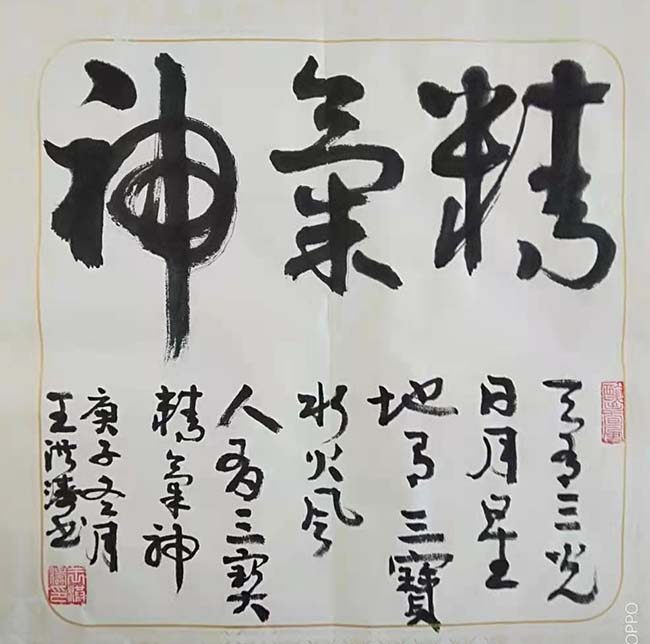 精氣神
天有三光
日月星
地有三寶
水火風
人有三寶
精氣神
庚子冬月
王洪濤书
OPPO